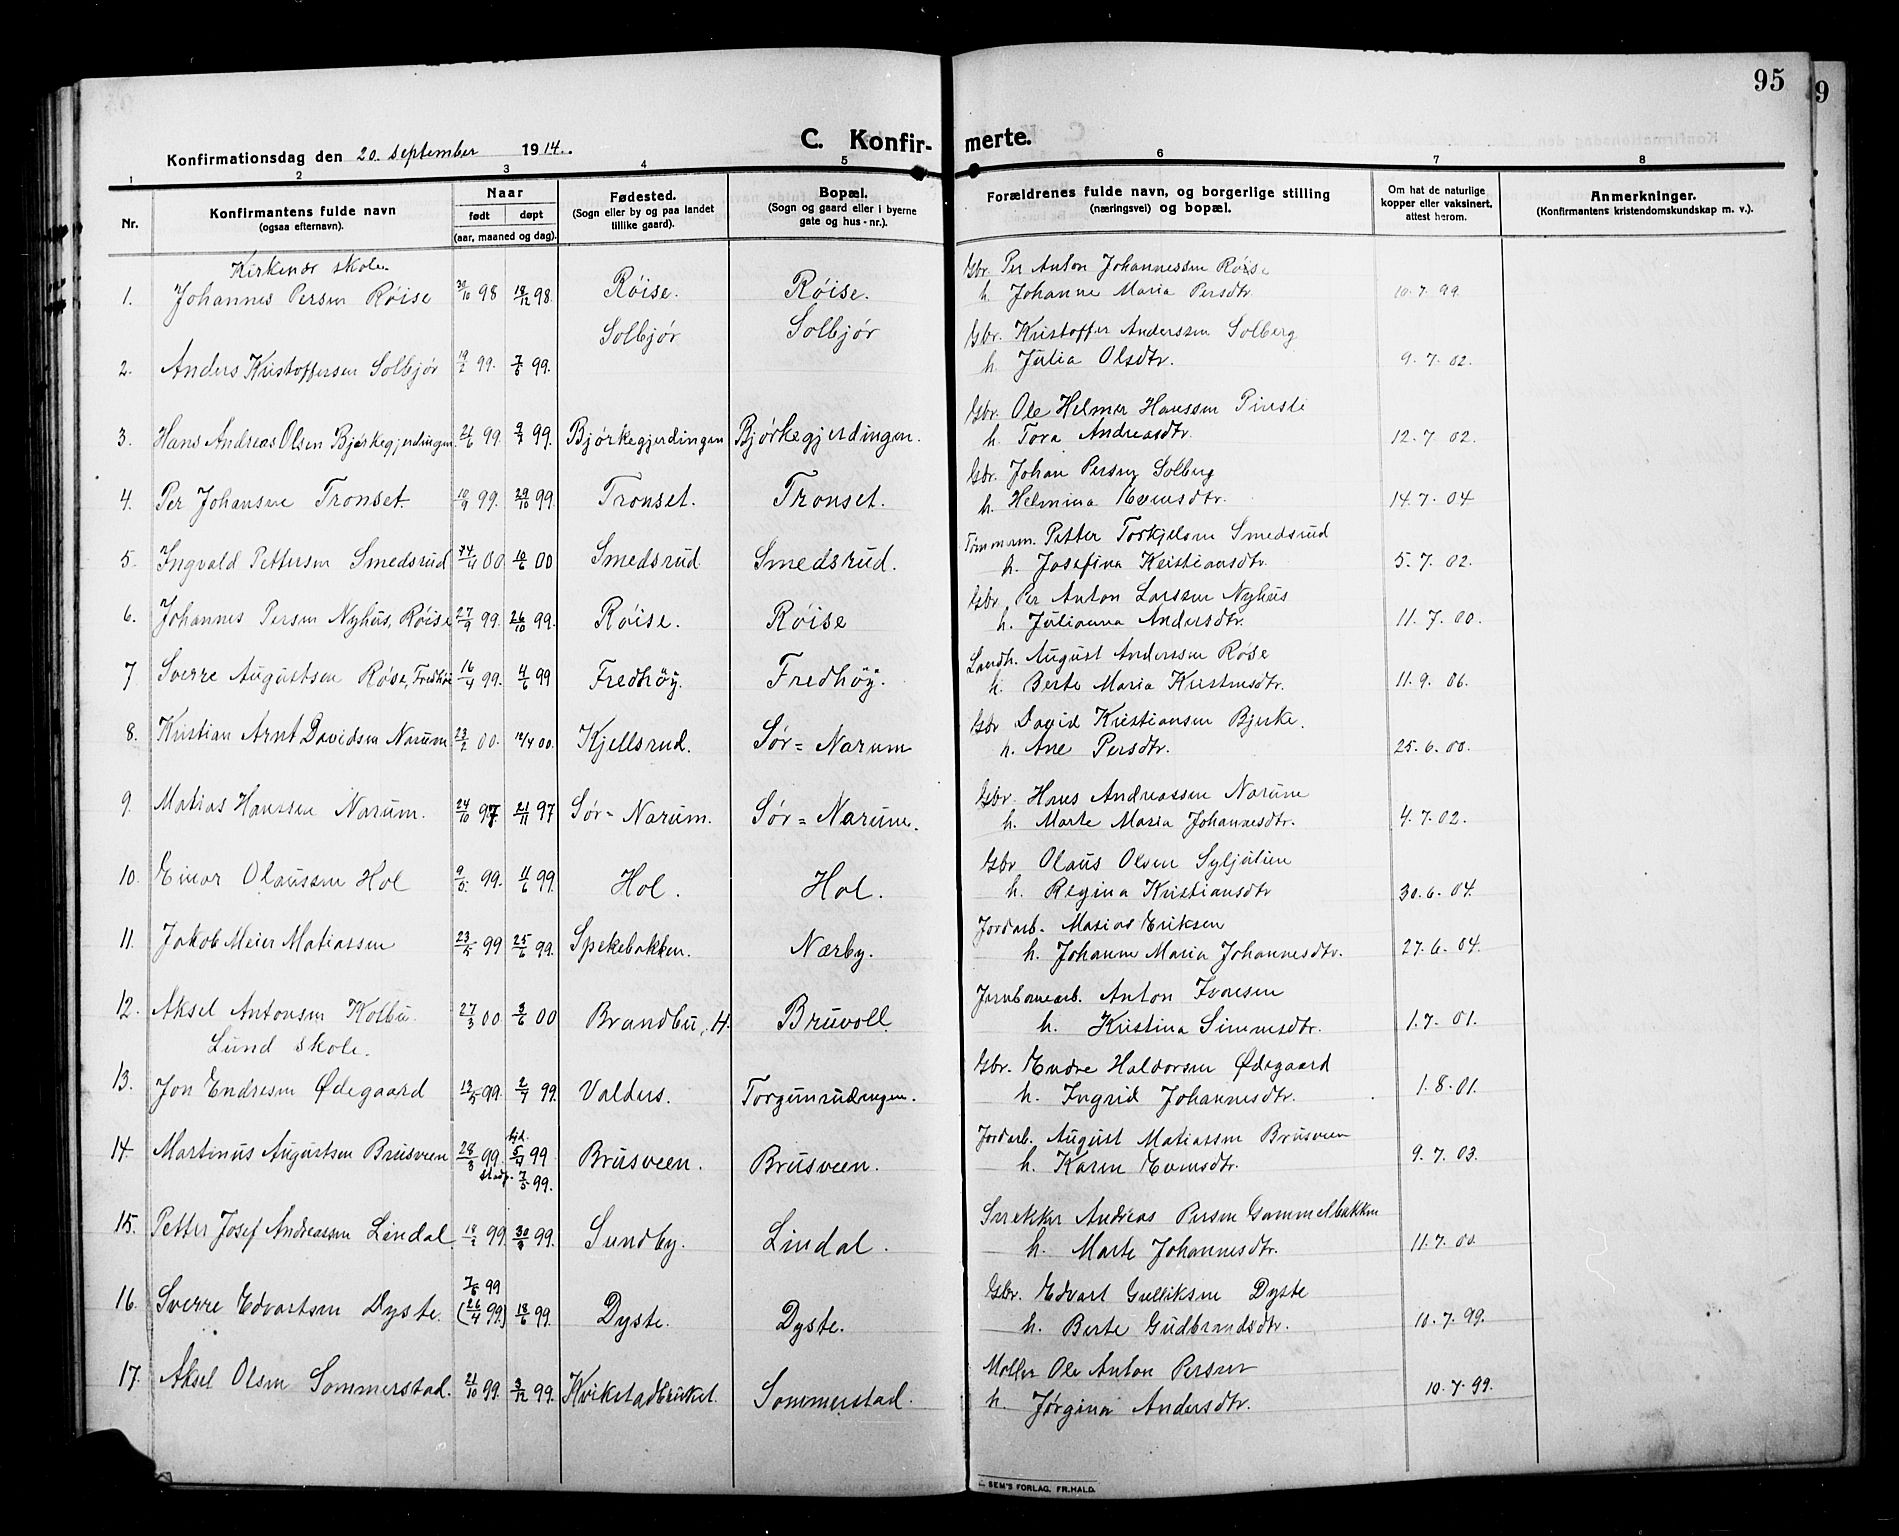 95
9
Konfirmationsdag den 20. september 1914.
C. Konfirmerte.
1 2 3 4 5 6 7 8
Nr.
Konfirmantens fulde navn
(ogsaa efternavn).
Naar
født døpt
(aar, maaned og dag).
Fødested.
(Sogn eller by og paa landet
tillike gaard).
Bopæl.
(Sogn og gaard eller i byerne
gate og hus-nr.).
Forældrenes fulde navn, og borgerlige stilling
(næringsvei) og bopæl.
Om hat de naturlige
kopper eller vaksinert.
attest herom.
Anmerkninger.
(Konfirmantens kristendomskundskap m. v.).
Kirkenær skole.
Gbr. Per Anton Johannessen Røise
1. Johannes Persen Røise 30/10 98 18/12 98. Røise. Røise. h. Johanne Maria Persdtr. 10.7.99.
Solbjør Solbjør Gbr. Kristoffer Anderssen Solberg
2. Anders Kristoffersen Solbjør 19/2 99. 7/5 99. h. Julia Olsdtr. 9.7.02.
Gbr. Ole Helmer Hanssen
3. Hans Andreas Olsen Bjørkegjerdingen 99. 99. Bjørkegjerdingen Bjørkegjerdingen. h. Tora Andreasdtr. 12.7.02.
Gbr. Johan Persen Solberg
4. Per Johansen Tronset. 99. 29/10 99. Tronset. Tronset. h. Helmina Evensdtr. 14.7.04
Tømmerm. Petter Torkjelsen Smedsrud
5. Ingvald Pettersen Smedsrud 00 00 Smedsrud. Smedsrud. h. Josefina Kristiansdtr. 5.7.02.
Gbr. Per Anton Larssen Nyhus
6. Johannes Persen Nyhus, Røise 27/9 99. 26/10 99. Røise. Røise h. Julianna Andersdtr. 11.7.00.
Landh. August Anderssen Røse
7 Sverre Augustsen Røse, Fredhøi 16/4 99. 4/6 99 Fredhöÿ. Fredhöÿ. h. Berte Maria Kristensdtr. 11.9.06.
Gbr David Kristiansen Bjerke.
8. Kristian Arnt Davidsen Narum. 23/2 00. 00. Kjellsrud. Sør=Narum h. Ane Persdtr. 25.6.00.
Gbr. Hans Andreassen Narum
9. Matias Hanssen Narum. 24/10 97 21/11 97 Sør=Narum. Sør=Narum. h. Marte Maria Johannesdtr. 4.7.02.
Gbr. Olaus Olsen Syljulien
10. Einar Olaussen Hol 9/5 99. 4/6 99. Hol. Hol. h. Regina Kristiansdtr 30.6.04.
Jordarb. Matias Eriksen
11. Jakob Meier Matiassen 23/5 99 25/6 99. Spekebakken. Nærby. h. Johanne Maria Johannesdtr. 27.6.04.
Jernbanearb. Anton Iversen
12. Aksel Antonsen Kolbu. 27/3 00 3/6 00 Brandbu, H. Bruvoll. h. Kristina Simensdtr. 1.7.01.
Lund skole.
Gbr. Endre Haldorsen Ødegaard
13. Jon Endresen Ødegaard 13/5 99. 2/7 99. Valders. Torgunrudengen. h. Ingrid Johannesdtr. 1.8.01.
Jordarb. August Matiassen Brusveen
14. Martinus Augustsen Brusveen 28/3 99. hjd. 5/4 99 stadf. 7/5 99. Brusveen. Brusveen. h. Karen Evensdtr. 9.7.03.
Snekker Andreas Persen Gammelbakken
15. Petter Josef Andreassen Lindal. 99. 99. Sundby. Lindal. h. Marte Johannesdtr. 11.7.00.
7/5 99
Gbr. Edvart Gulliksen Dyste
16. Sverre Edvartsen Dyste. (26/4 99.) 18/6 99. Dyste. Dyste. h. Berte Gudbrandsdtr. 10.7.99.
Møller Ole Anton Persen
17. Aksel Olsen Sommerstad. 21/10 99. 3/12 99. Kvikstadbruket. Sommerstad. h. Jørgina Andersdtr. 10.7.99.
SEM'S FORLAG, FR.HALD.